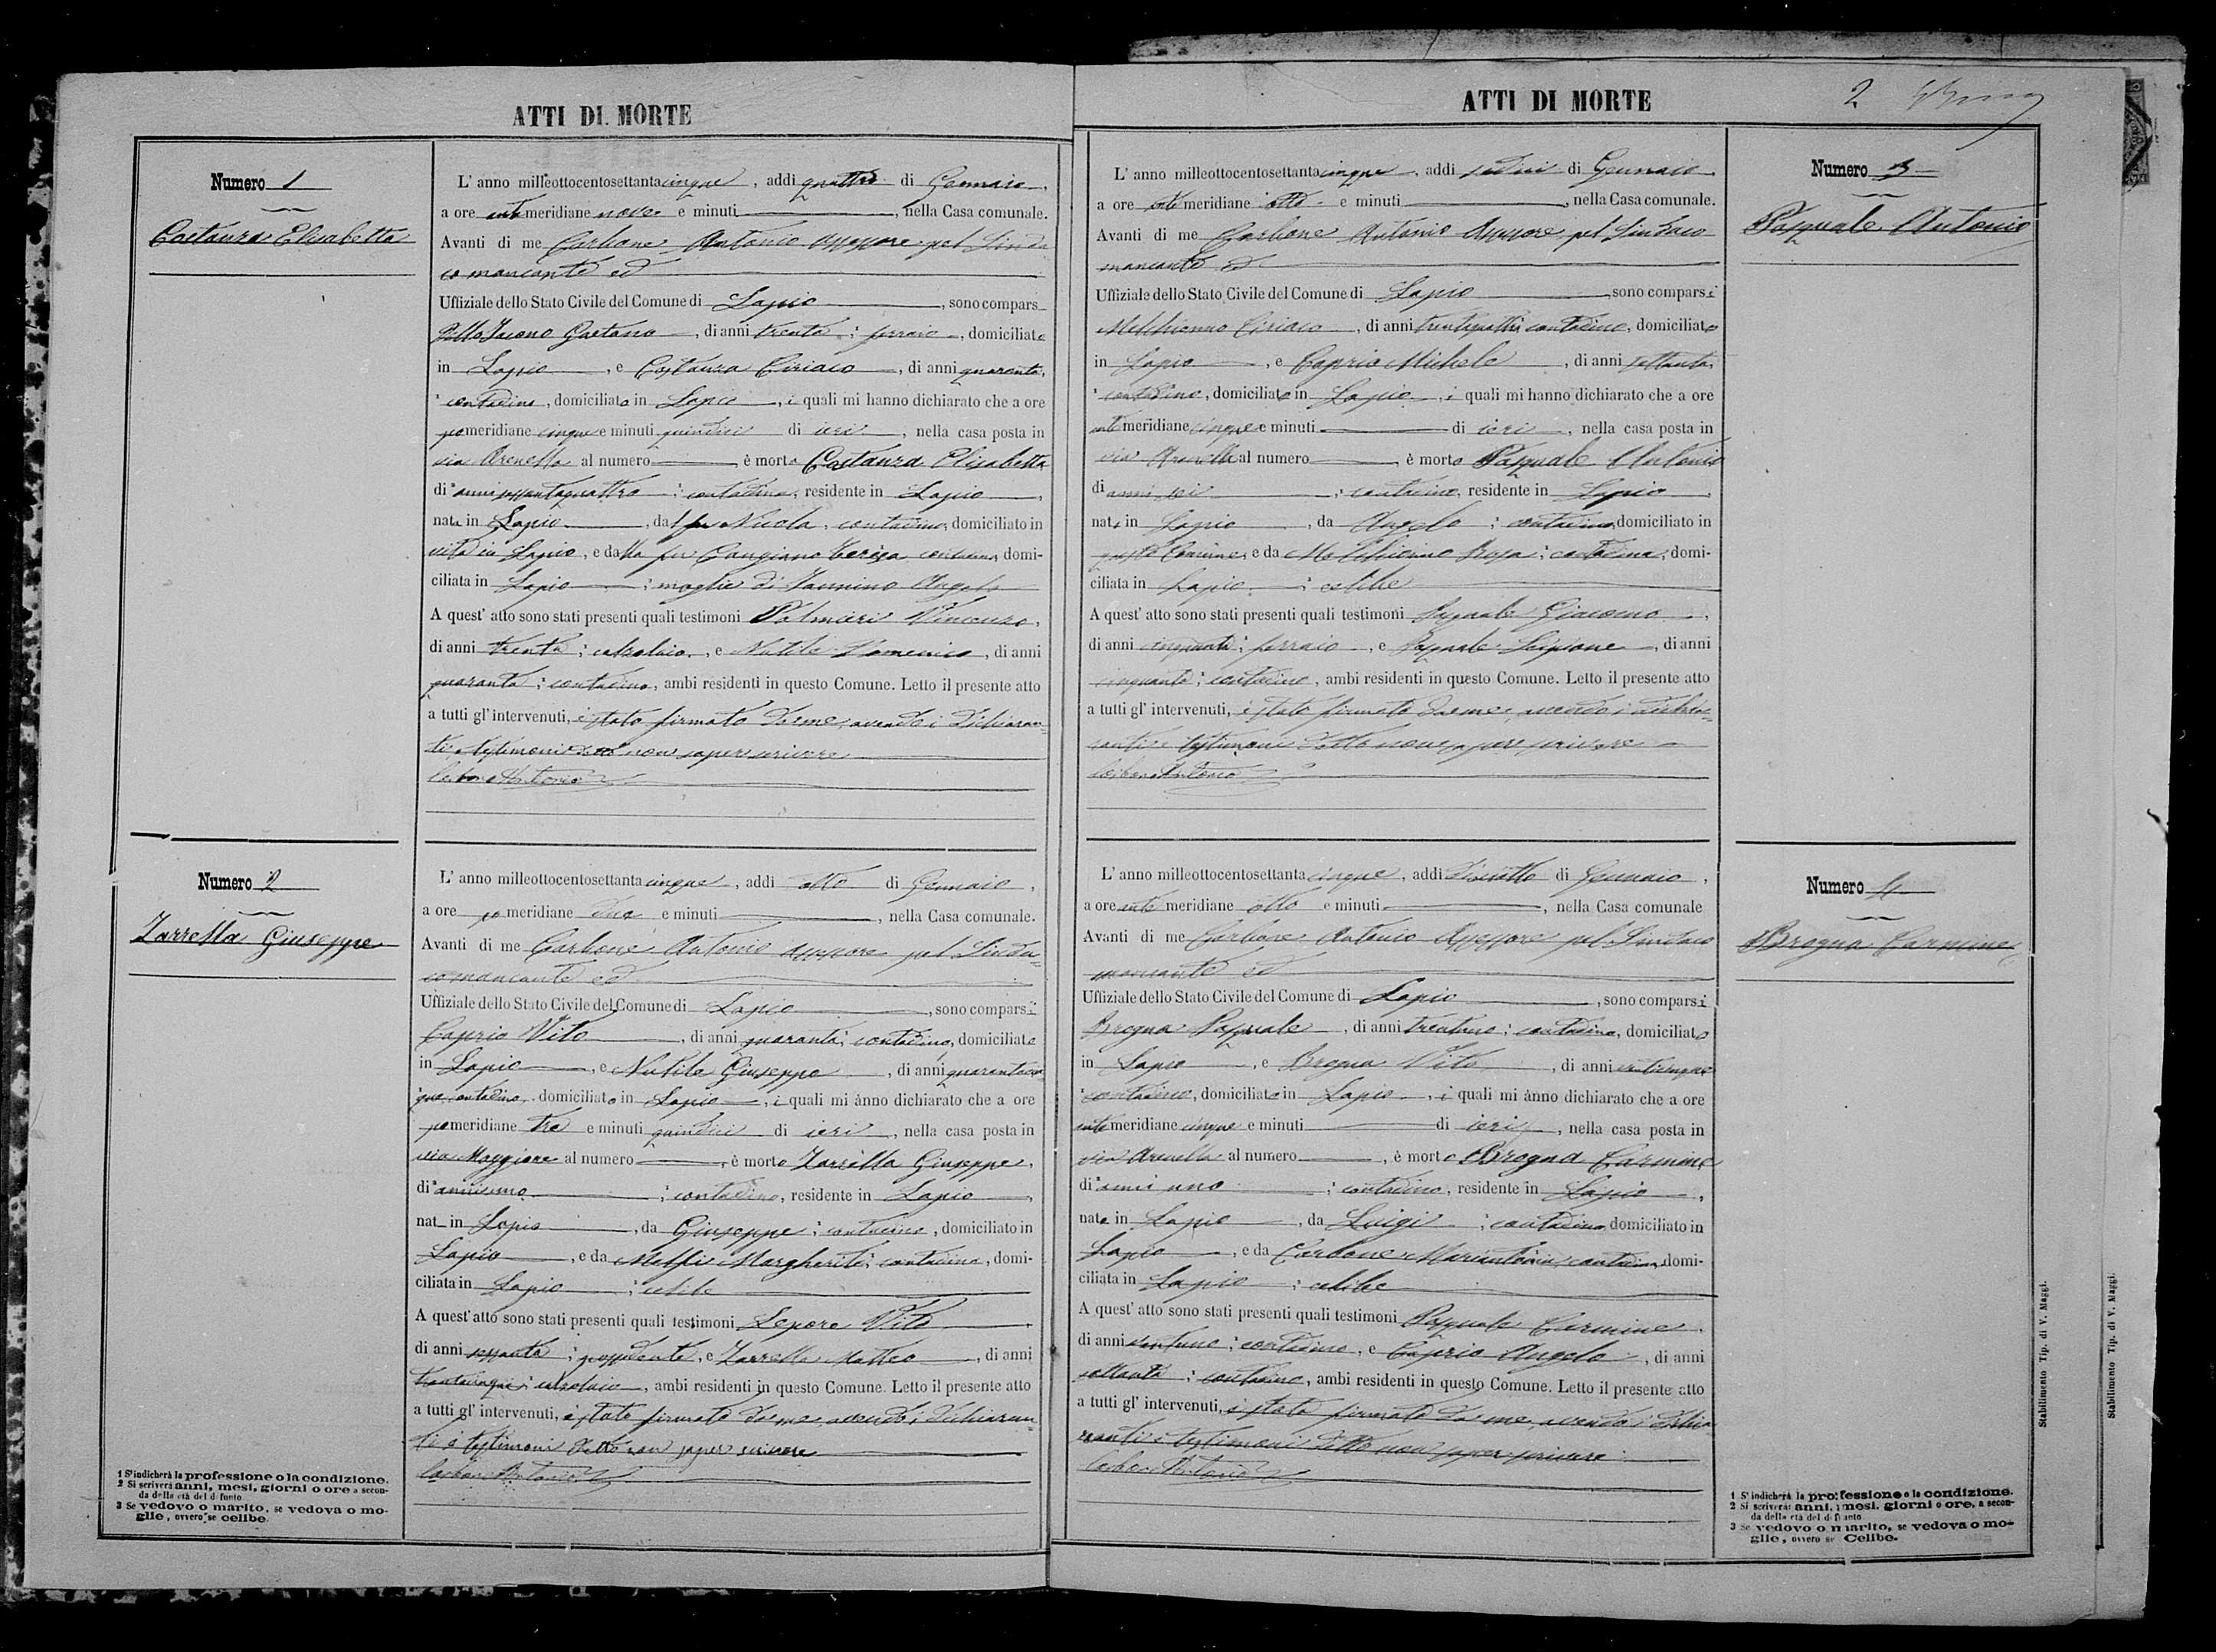 ATTI DI MORTE
Numero 1
Costanza Elisabetta
L' anno milleottocentosettanta cinque, addì quattro di Gennaio,
a ore antemeridiane nove e minuti, nella Casa comunale.
Avanti di me Carbone Antonio Assessore pel Sinda
co mancante ed
Uffiziale dello Stato Civile del Comune di Lapio, sono compars
Dello Jacono Gaetano, di anni trenta; ferraio, domiciliato
in Lapio, e Costanza Ciriaco, di anni quaranta,
contadino, domiciliato in Lapio, i quali mi hanno dichiarato che a ore
pomeridiane cinque e minuti quindici di ieri, nella casa posta in
via Arenella al numero, è morta Costanza Elisabetta
di anni sessantaquattro; contadina, residente in Lapio,
nata in Lapio, dal fu Nicola, contadino, domiciliato in
vita in Lapio, e dalla fu Cangiano Teresa, contadina, domi-
ciliata in Lapio; moglie di Iannino Angelo
A quest' atto sono stati presenti quali testimoni Palmieri Vincenzo,
di anni trenta; calzolaio, e Nutile Domenico, di anni
quaranta; contadino, ambi residenti in questo Comune. Letto il presente atto
a tutti gl' intervenuti, è stato firmato da me, avendo i dichiaran-
ti e testimoni detto non saper scrivere
Carbone Antonio
Numero 2
Zarrella Giuseppe
L' anno milleottocentosettanta cinque, addì otto di Gennaio,
a ore pomeridiane due e minuti, nella Casa comunale.
Avanti di me Carbone Antonio Assessore pel Sinda-
co mancante ed
Uffiziale dello Stato Civile del Comune di Lapio, sono comparsi
Caprio Vito, di anni quaranta; contadino, domiciliato
in Lapio, e Nutile Giuseppe, di anni quarantacin
que contadino, domiciliato in Lapio, i quali mi ànno dichiarato che a ore
pomeridiane tre e minuti quindici di ieri, nella casa posta in
via Maggiore al numero, è morto Zarrella Giuseppe,
di anni uno; contadino, residente in Lapio,
nat in Lapio, da Giuseppe; contadino, domiciliato in
Lapio, e da Melfi Margherita; contadina, domi-
ciliata in Lapio; celibe
A quest' atto sono stati presenti quali testimoni Lepore Vito
di anni sessanta; possidente, e Zarrella Matteo, di anni
trentacinque; calzolaio, ambi residenti in questo Comune. Letto il presente atto
a tutti gl' intervenuti, è stato firmato da me, avendo i dichiaran
ti e testimoni detto non saper scrivere
Carbone Antonio
1 S'indicherà la professione o la condizione.
2 Si scriverà anni, mesi, giorni o ore a secon-
da della età del defunto
3 Se vedovo o marito, se vedova o mo-
glie, ovvero se celibe
ATTI DI MORTE
2
Numero 3
Pasquale Antonio
L' anno milleottocentosettanta cinque, addì sedici di Gennaio,
a ore antemeridiane otto e minuti, nella Casa comunale.
Avanti di me Carbone Antonio Assessore pel Sindaco
mancante ed
Uffiziale dello Stato Civile del Comune di Lapio, sono comparsi
Melchionno Ciriaco, di anni trentaquattro contadino, domiciliato
in Lapio, e Caprio Michele, di anni settanta,
contadino, domiciliato in Lapio, i quali mi hanno dichiarato che a ore
antemeridiane cinque e minuti di ieri, nella casa posta in
via Arenella al numero è morto Pasquale Antonio
di anni sei; contadino, residente in Lapio,
nato in Lapio, da Angelo; contadino, domiciliato in
questo Comune, e da Melchionno Rosa; contadina; domi-
ciliata in Lapio; celibe
A quest' atto sono stati presenti quali testimoni Pasquale Giacomo,
di anni cinquanta; ferraio, e Pasquale Scipione, di anni
cinquanta; contadino, ambi residenti in questo Comune. Letto il presente atto
a tutti gl' intervenuti, è stato firmato da me, avendo i dichia-
ranti e testimoni detto non sapere scrivere
Carbone Antonio
Numero 4
Brogna Carmine
L' anno milleottocentosettanta cinque, addì diciotto di Gennaio,
a ore ante meridiane otto e minuti, nella Casa comunale
Avanti di me Carbone Antonio Assessore pel Sindaco
mancante ed
Uffiziale dello Stato Civile del Comune di Lapio, sono comparsi
Brogna Pasquale, di anni trentuno; contadino, domiciliato
in Lapio, e Brogna Vito, di anni venticinque
contadino, domiciliato in Lapio, i quali mi ànno dichiarato che a ore
antemeridiane cinque e minuti di ieri, nella casa posta in
via Arenella al numero, è morto Brogna Carmine
di anni uno; contadino, residente in Lapio,
nato in Lapio, da Luigi; contadino domiciliato in
Lapio, e da Carbone Mariantonia, contadina, domi-
ciliata in Lapio; celibe
A quest' atto sono stati presenti quali testimoni Pasquale Carmine
di anni; contadino, e Caprio Angelo, di anni
settanta; contadino, ambi residenti in questo Comune. Letto il presente atto
a tutti gl' intervenuti, è stato firmato da me, avendo i dichia
ranti e testimoni detto non saper scrivere
Carbone Antonio
1 S'indicherà la professione o la condizione.
2 Si scriverà: anni, mesi, giorni o ore, a secon-
da della età del defunto
3 Se vedovo o marito, se vedova o mo-
glie, ovvero se Celibe.
Stabilimento Tip. di V. Maggi.
Stabilimento Tip. di V. Maggi.